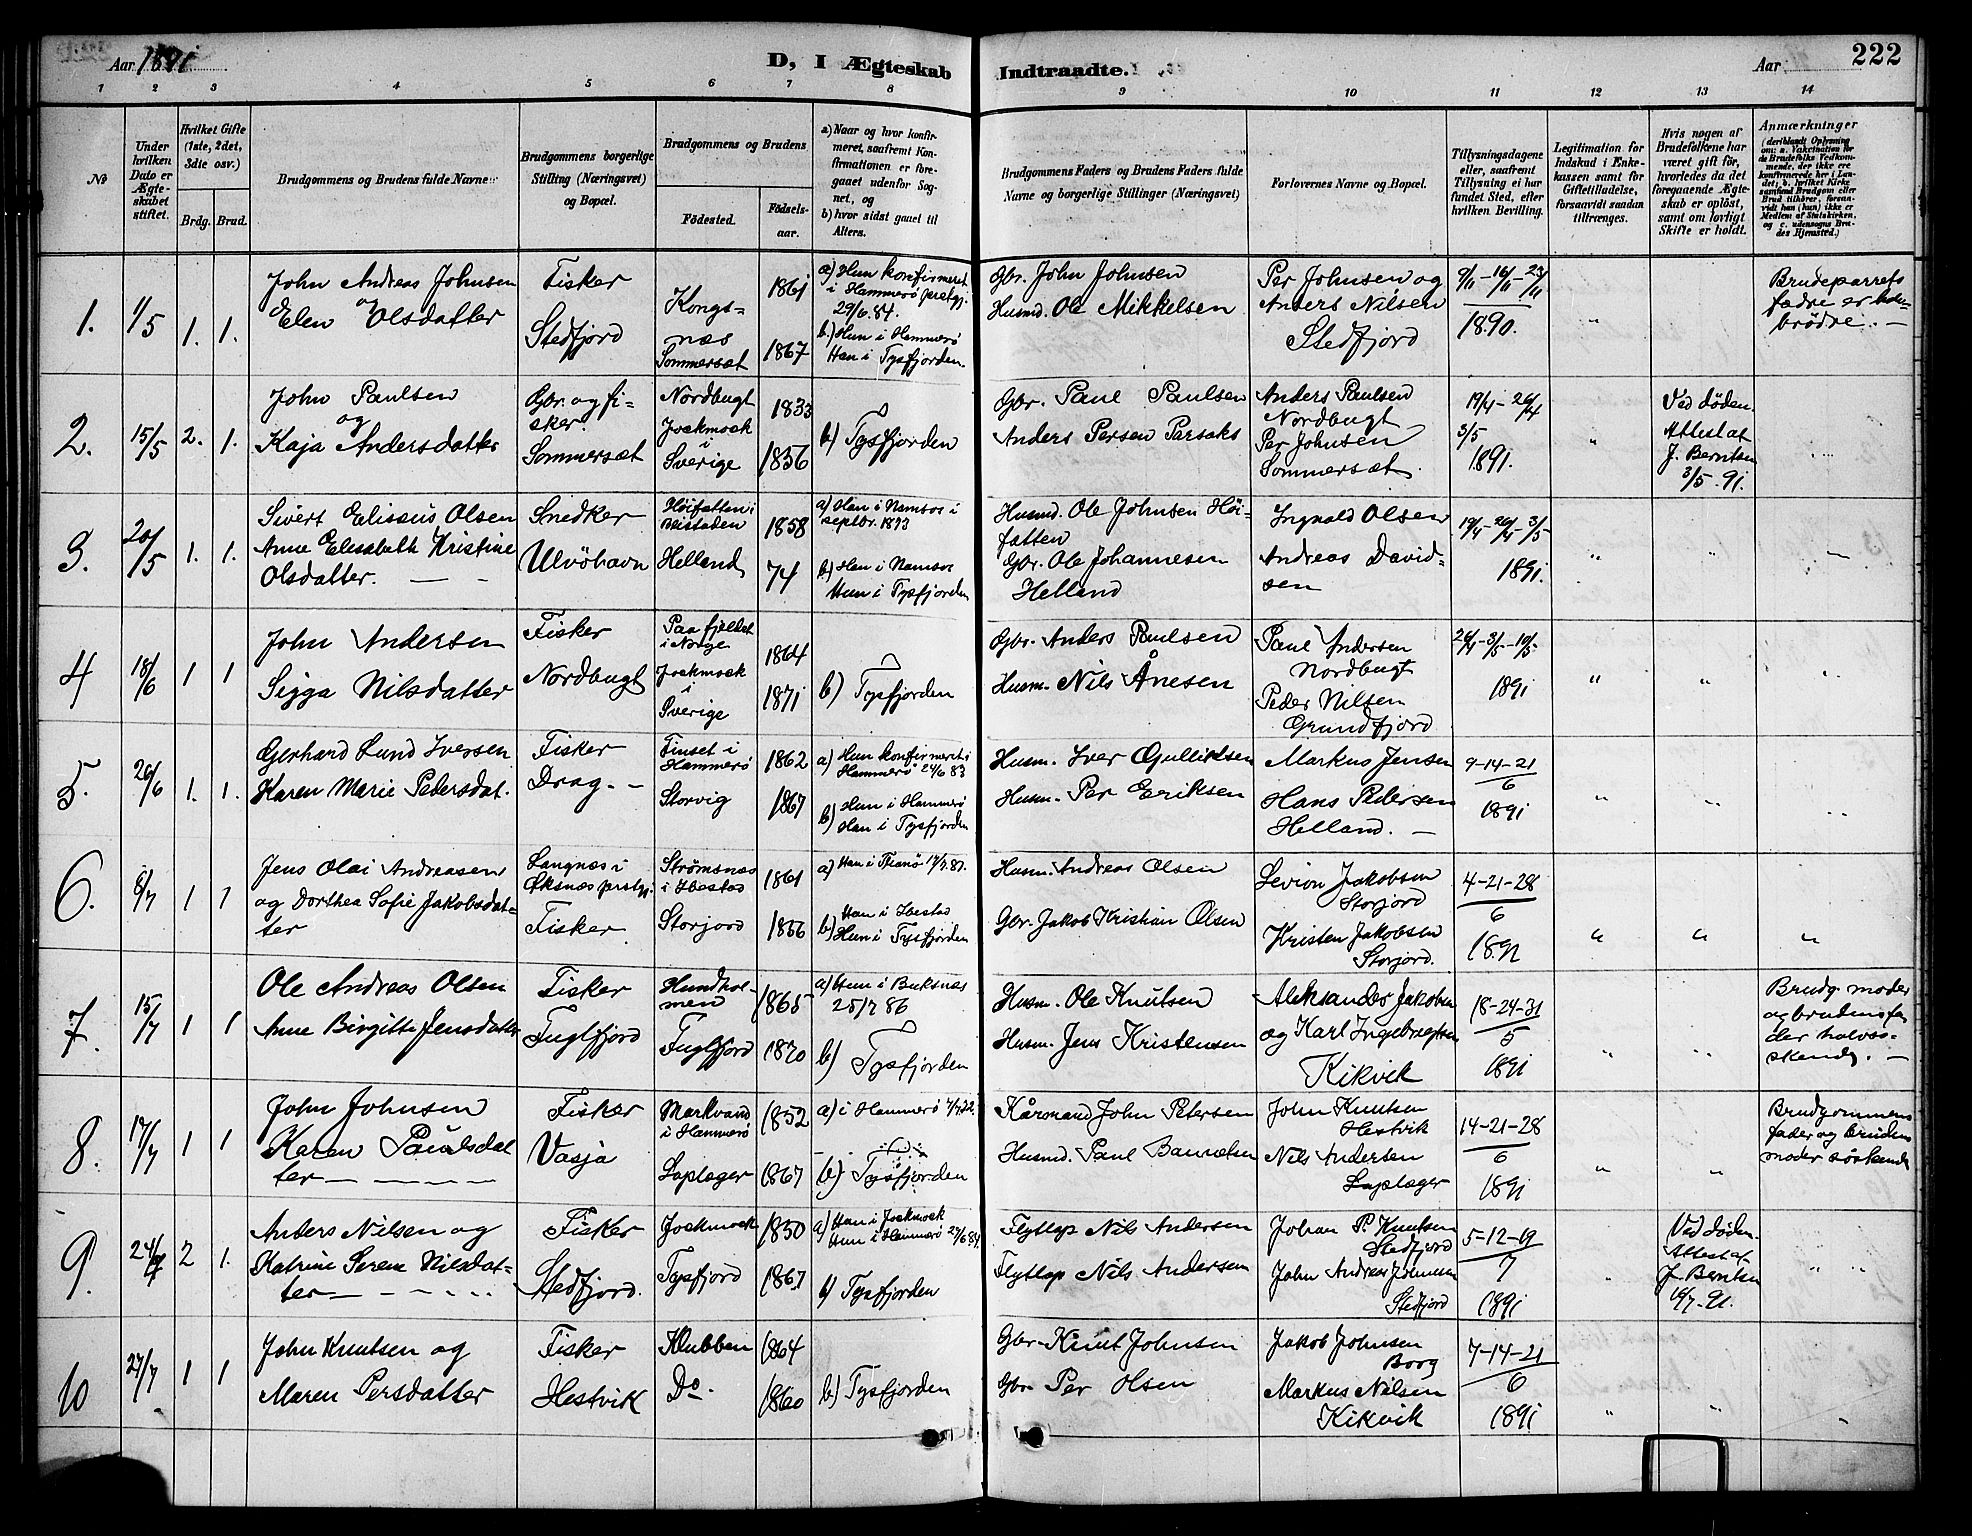 Aar 1891
D, I Ægteskab
Indtraadte.
Aar
222
1 2 3 4 5 6 7 8 9 10 11 12 13 14
No
Under hvilken Dato er Ægteskabet stiftet.
Hvilket Gifte (1ste, 2det, 3die osv.)
Brdg. Brud.
Brudgommens og Brudens fulde Navne
Brudgommens borgerlige Stilling (Næringsvei) og Bopæl.
Brudgommens og Brudens
Fødested.
Fødselsaar.
a) Naar og hvor konfirmeret, saafremt Konfirmationen er foregaaet udenfor Sognet, og
b) hvor sidst gaaet til Alters.
Brudgommens Faders og Brudens Faders fulde Navne og borgerlige Stillinger (Næringsvei)
Forlovernes Navne og Bopæl.
Tillysningsdagene eller, saafremt Tillysning ei har fundet Sted, efter hvilken Bevilling.
Legitimation for Indskud i Enkekassen samt for Giftetilladelse, forsaavidt saadan tiltrænges.
Hvis nogen af Brudefolkene har været gift før, hvorledes da det foregaaende Ægteskab er opløst, samt om lovligt Skifte er holdt.
Anmærkninger
(deriblandt Oplysning om: a. Vakcination for de Brudefolks Vedkommende, der ikke ere konfirmerede her i Landet; b. hvilket Kirkesamfund Brudgom eller Brud tilhører, forsaavidt han (hun) ikke er Medlem af Statskirken, og c. udensogns Brudes Hjemsted.)
1. 1/5 1. 1.
John Andreas Johnsen
og
Elen Olsdatter
Fisker
Stedfjord
Kongsnæs
Sommersæt
1861
1867
a) Hun konfirmeret
i Hammerø prstgj.
29/6. 84.
b.) Hun i Hammerø
Han i Tysfjorden
Gbr. John Johnsen
Husmd. Ole Mikkelsen
Per Johnsen og
Anders Nilsen
Stedfjord
9/11 - 16/11 - 23/11
1890.
"
Brudeparrets
fædre er
brødre. —
2. 15/5 2. 1.
John Paulsen
og
Kaja Andersdatter
Gbr. og fisker
Sommersæt
Nordbugt
Jockmock
i
Sverige
1833
1856
b) Tysfjorden
Gbr. Paul Paulsen
Anders Persen Parsaks
Anders Paulsen
Nordbugt
Per Johnsen
Sommersæt
19/4 - 26/4
3/5
1891.
"
Ved døden.
Attest af
J. Berntsen
3/5. 91.
3. 20/5 1. 1.
Sivert Elisæus Olsen
Anne Elisabeth Kristine
Olsdatter. — —
Snedker
Ulvöhavn
Höifatten i
Beistaden
Helland
1858
74
a) Han i Namsos i
septbr. 1873
b) Han i Namsos
Hun i Tysfjorden
Husmd. Ole Johnsen Höifatten
Gbr. Ole Johannesen
Helland
Ingvald Olsen
Andreas Davidsen
19/4 - 26/4 - 3/5
1891.
4 18/6 1 1
John Andersen
Sigga Nilsdatter
Fisker
Nordbugt
Paa fjeldet
i Norge
Jockmock
i
Sverige
1864
1871
b) Tysfjorden
Gbr. Anders Paulsen
Husm. Nils Ånesen
Paul Andersen
Nordbugt
Peder Nilsen
Grundfjord
26/4 - 3/5 - 10/5
1891
5. 26/6 1. 1.
Gerhard Lund Iversen
Karen Marie Pedersdat.
Fisker
Drag. —
Finset i
Hammerø
Storvig
1862
1867
a) Hun konfirmeret i
Hammerø 24/6 83
b) Hun i Hammerø
Han i Tysfjorden
Husm. Iver Gulliksen
Husm. Per Eriksen
Markus Jensen
Hans Pedersen
Helland. —
9-14-21
6
1891
6. 8/7 1 1
Jens Olai Andreasen
og Dorthea Sofie Jakobsdatter
Langnæs i
Øksnæs prstgj.
Fisker
Strømsnæs
i Ibestad
Storjord
1861
1866
a) Han i Tranö 17/7. 81.
b) Han i Ibestad
Hun i Tysfjorden
Husm. Andreas Olsen
Gbr. Jakob Kristian Olsen
Levion Jakobsen
Storjord
Kristen Jakobsen
Storjord.
4-21-28
6
1891
7. 15/7 1 1
Ole Andreas Olsen
Anne Birgitte Jensdatter
Fisker
Fuglfjord
Hundholmen
Fuglfjord
1865
1870
a) Hun i Buksnæs
25/7 86
b) Tysfjorden
Husm. Ole Knutsen
Husm. Jens Kristensen
Aleksander Jakobsen
og Karl Ingebregtsen
Kikvik
18-24-31
5
1891
Brudg. moder
og brudens fader
halvsøskende. —
8. 17/7 1 1
John Johnsen
Karen Paulsdatter
— — — —
Fisker
Vasja
Markvand
i Hammerø
Laplæger
1852
1867
a) i Hammerø
b) Tysfjorden
Kårmand John Petersen
Husmd. Paul
John Knutsen
Hestvik
Nils Andersen
Laplæger
14-21-28
6
1891
Brudgommens
fader og brudens
moder søskende
9. 24/7 2 1.
Anders Nilsen og
Katrine Serene Nilsdatter
— — — —
Fisker
Stedfjord.
Jockmock
Tysfjord
1850
1867
a) Han i Jockmock
Hun i Hammerø
b) Tysfjorden
Flytlap Nils Andersen
Flytlap Nils Andersen
Johan P. Knutsen
Stedfjord
John Andreas Johnsen
Stedfjord
5-12-19
7
1891
Ved døden.
Attest af
J. Berntsen
19/7. 91.
10 27/7 1 1
John Knutsen og
Maren Persdatter
Fisker
Hestvik
Klubben
Do.
1864
1860
b) Tysfjorden
Gbr. Knut Johnsen
Gbr. Per Olsen
Jakob Johnsen
Borg
Markus Nilsen
Kikvik
7-14-21
6
1891